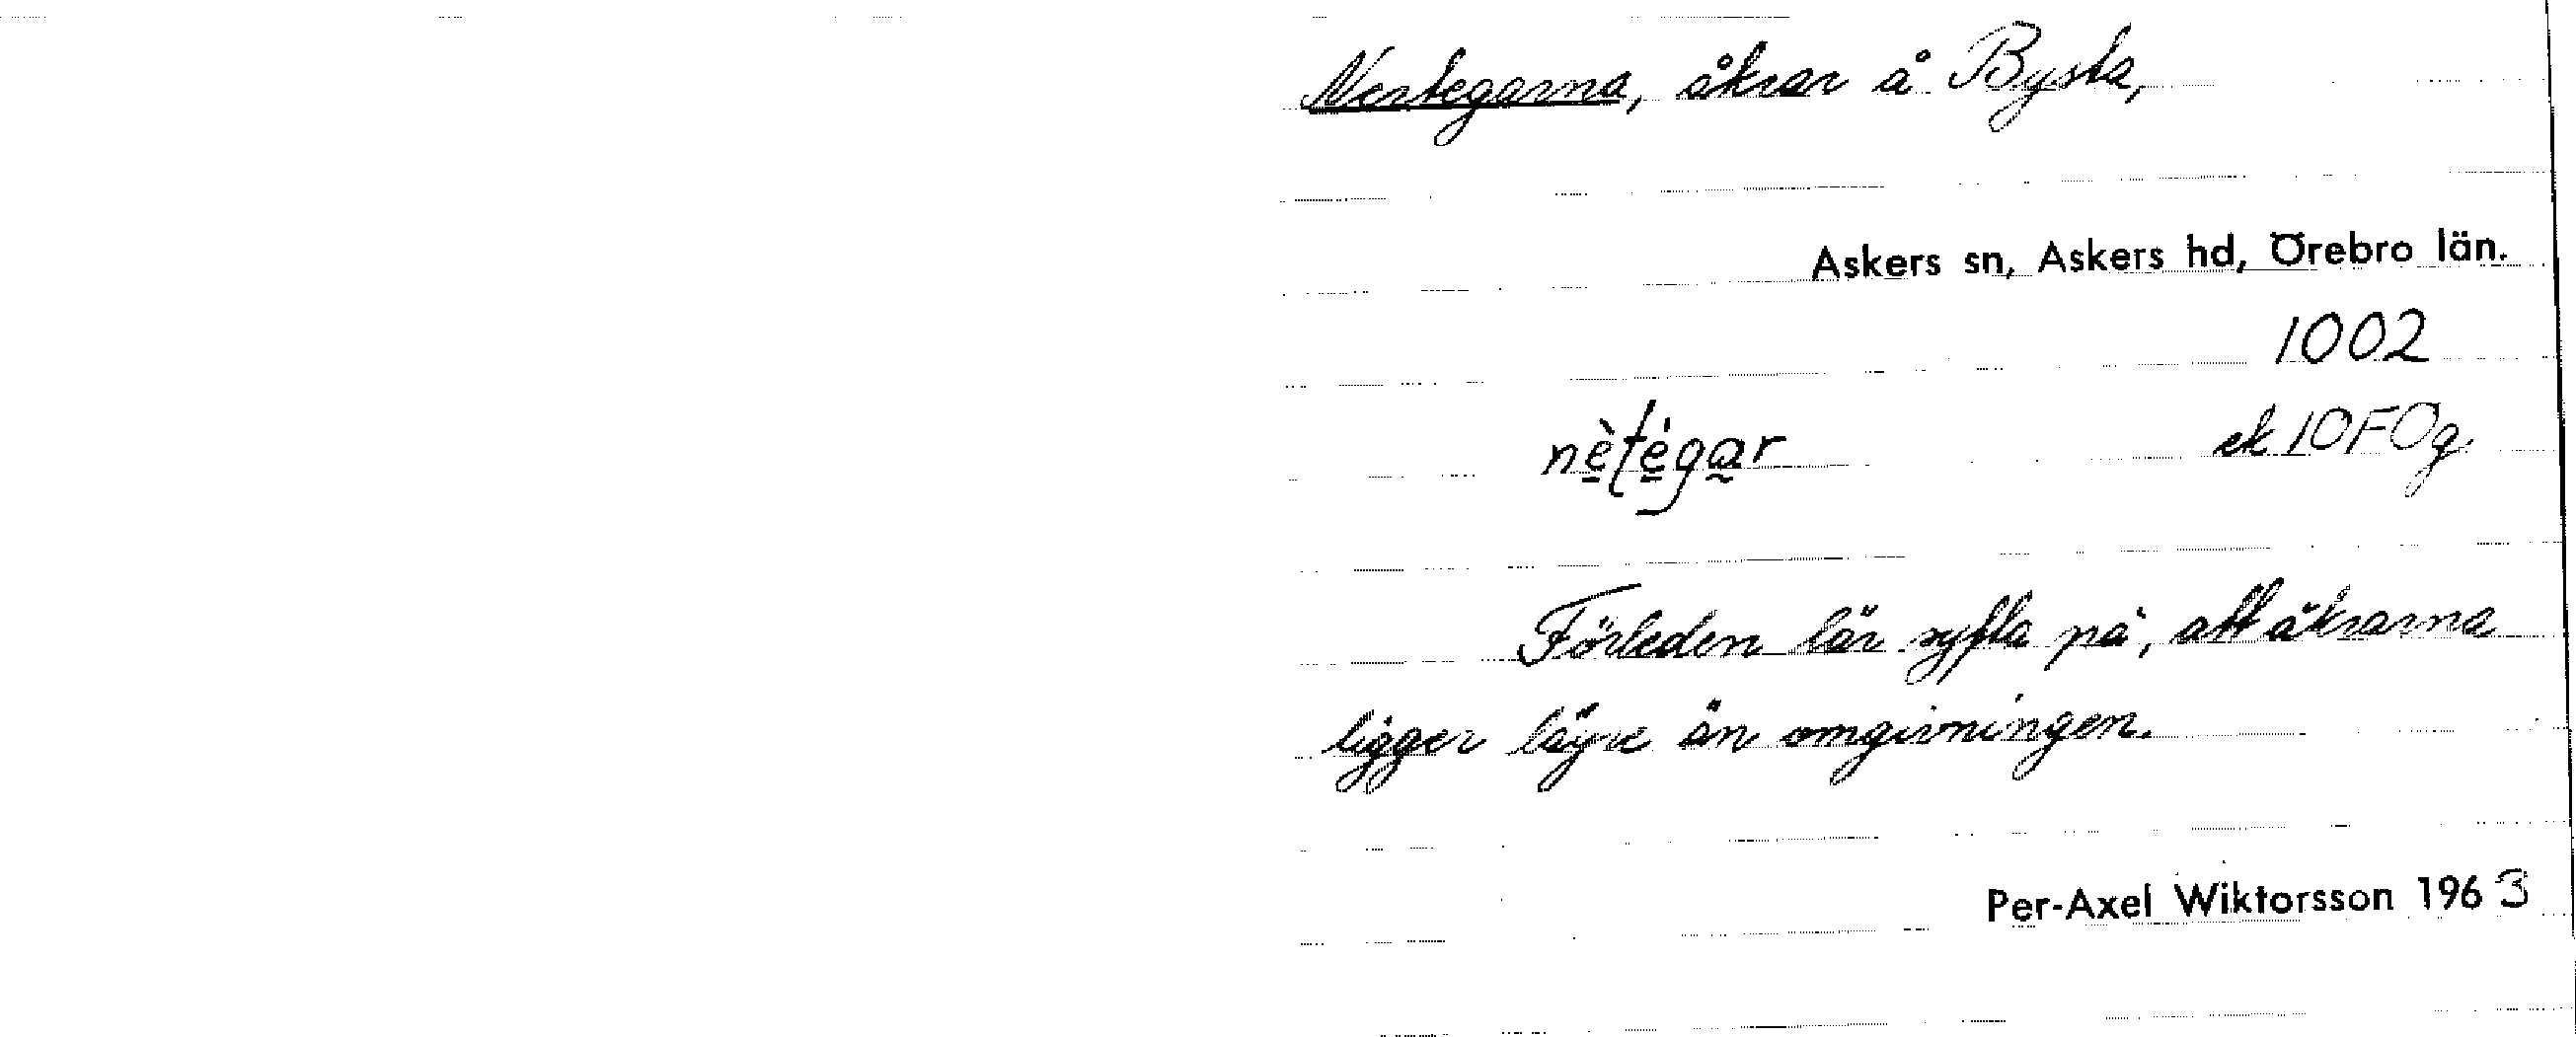 Nertegarna, åkrar å Bysta,
Askers sn, Askers hd, Örebro län.
1002
nètégar ek 10F0g.
Förleden lär syfta på, att åkrarna
ligger lägre än omgivningen.
Per-Axel Wiktorsson 1963